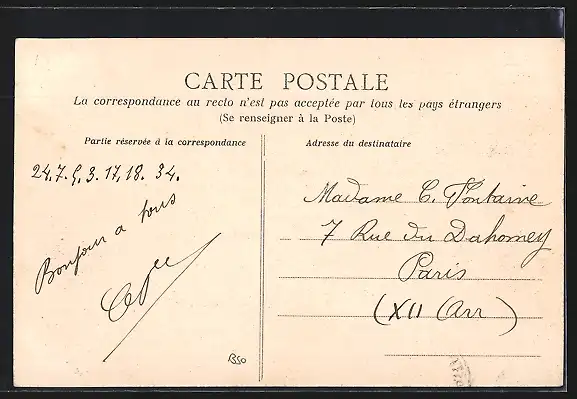 CARTE POSTALE
La correspondance au recto n'est pas acceptée par tous les pays étrangers
(Se renseigner à la Poste)
Partie réservée à la correspondance
Adresse du destinataire
24.7.5.3.17.18. 34.
Bonjour a tous
Madame C. Fontaine
7 Rue du Dahomey
Paris
(XII Arr)
B50